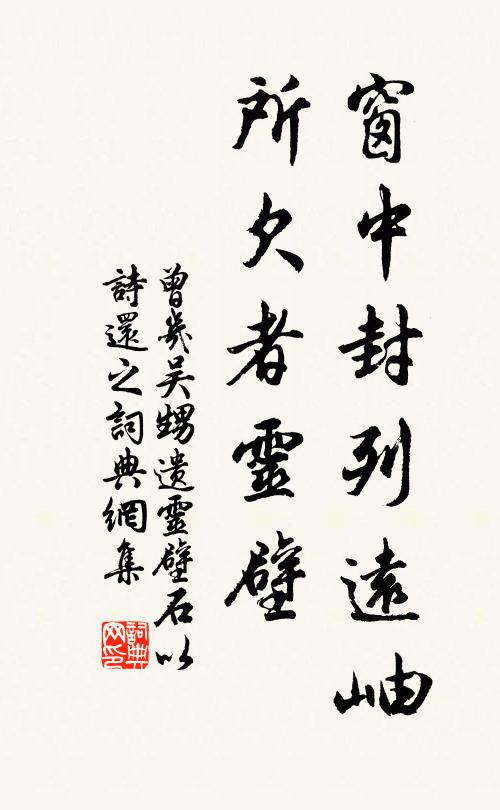 窗中封列遠岫
所欠者靈壁
曾幾吳甥遺靈壁石以
詩還之詞典網集
詞典网印